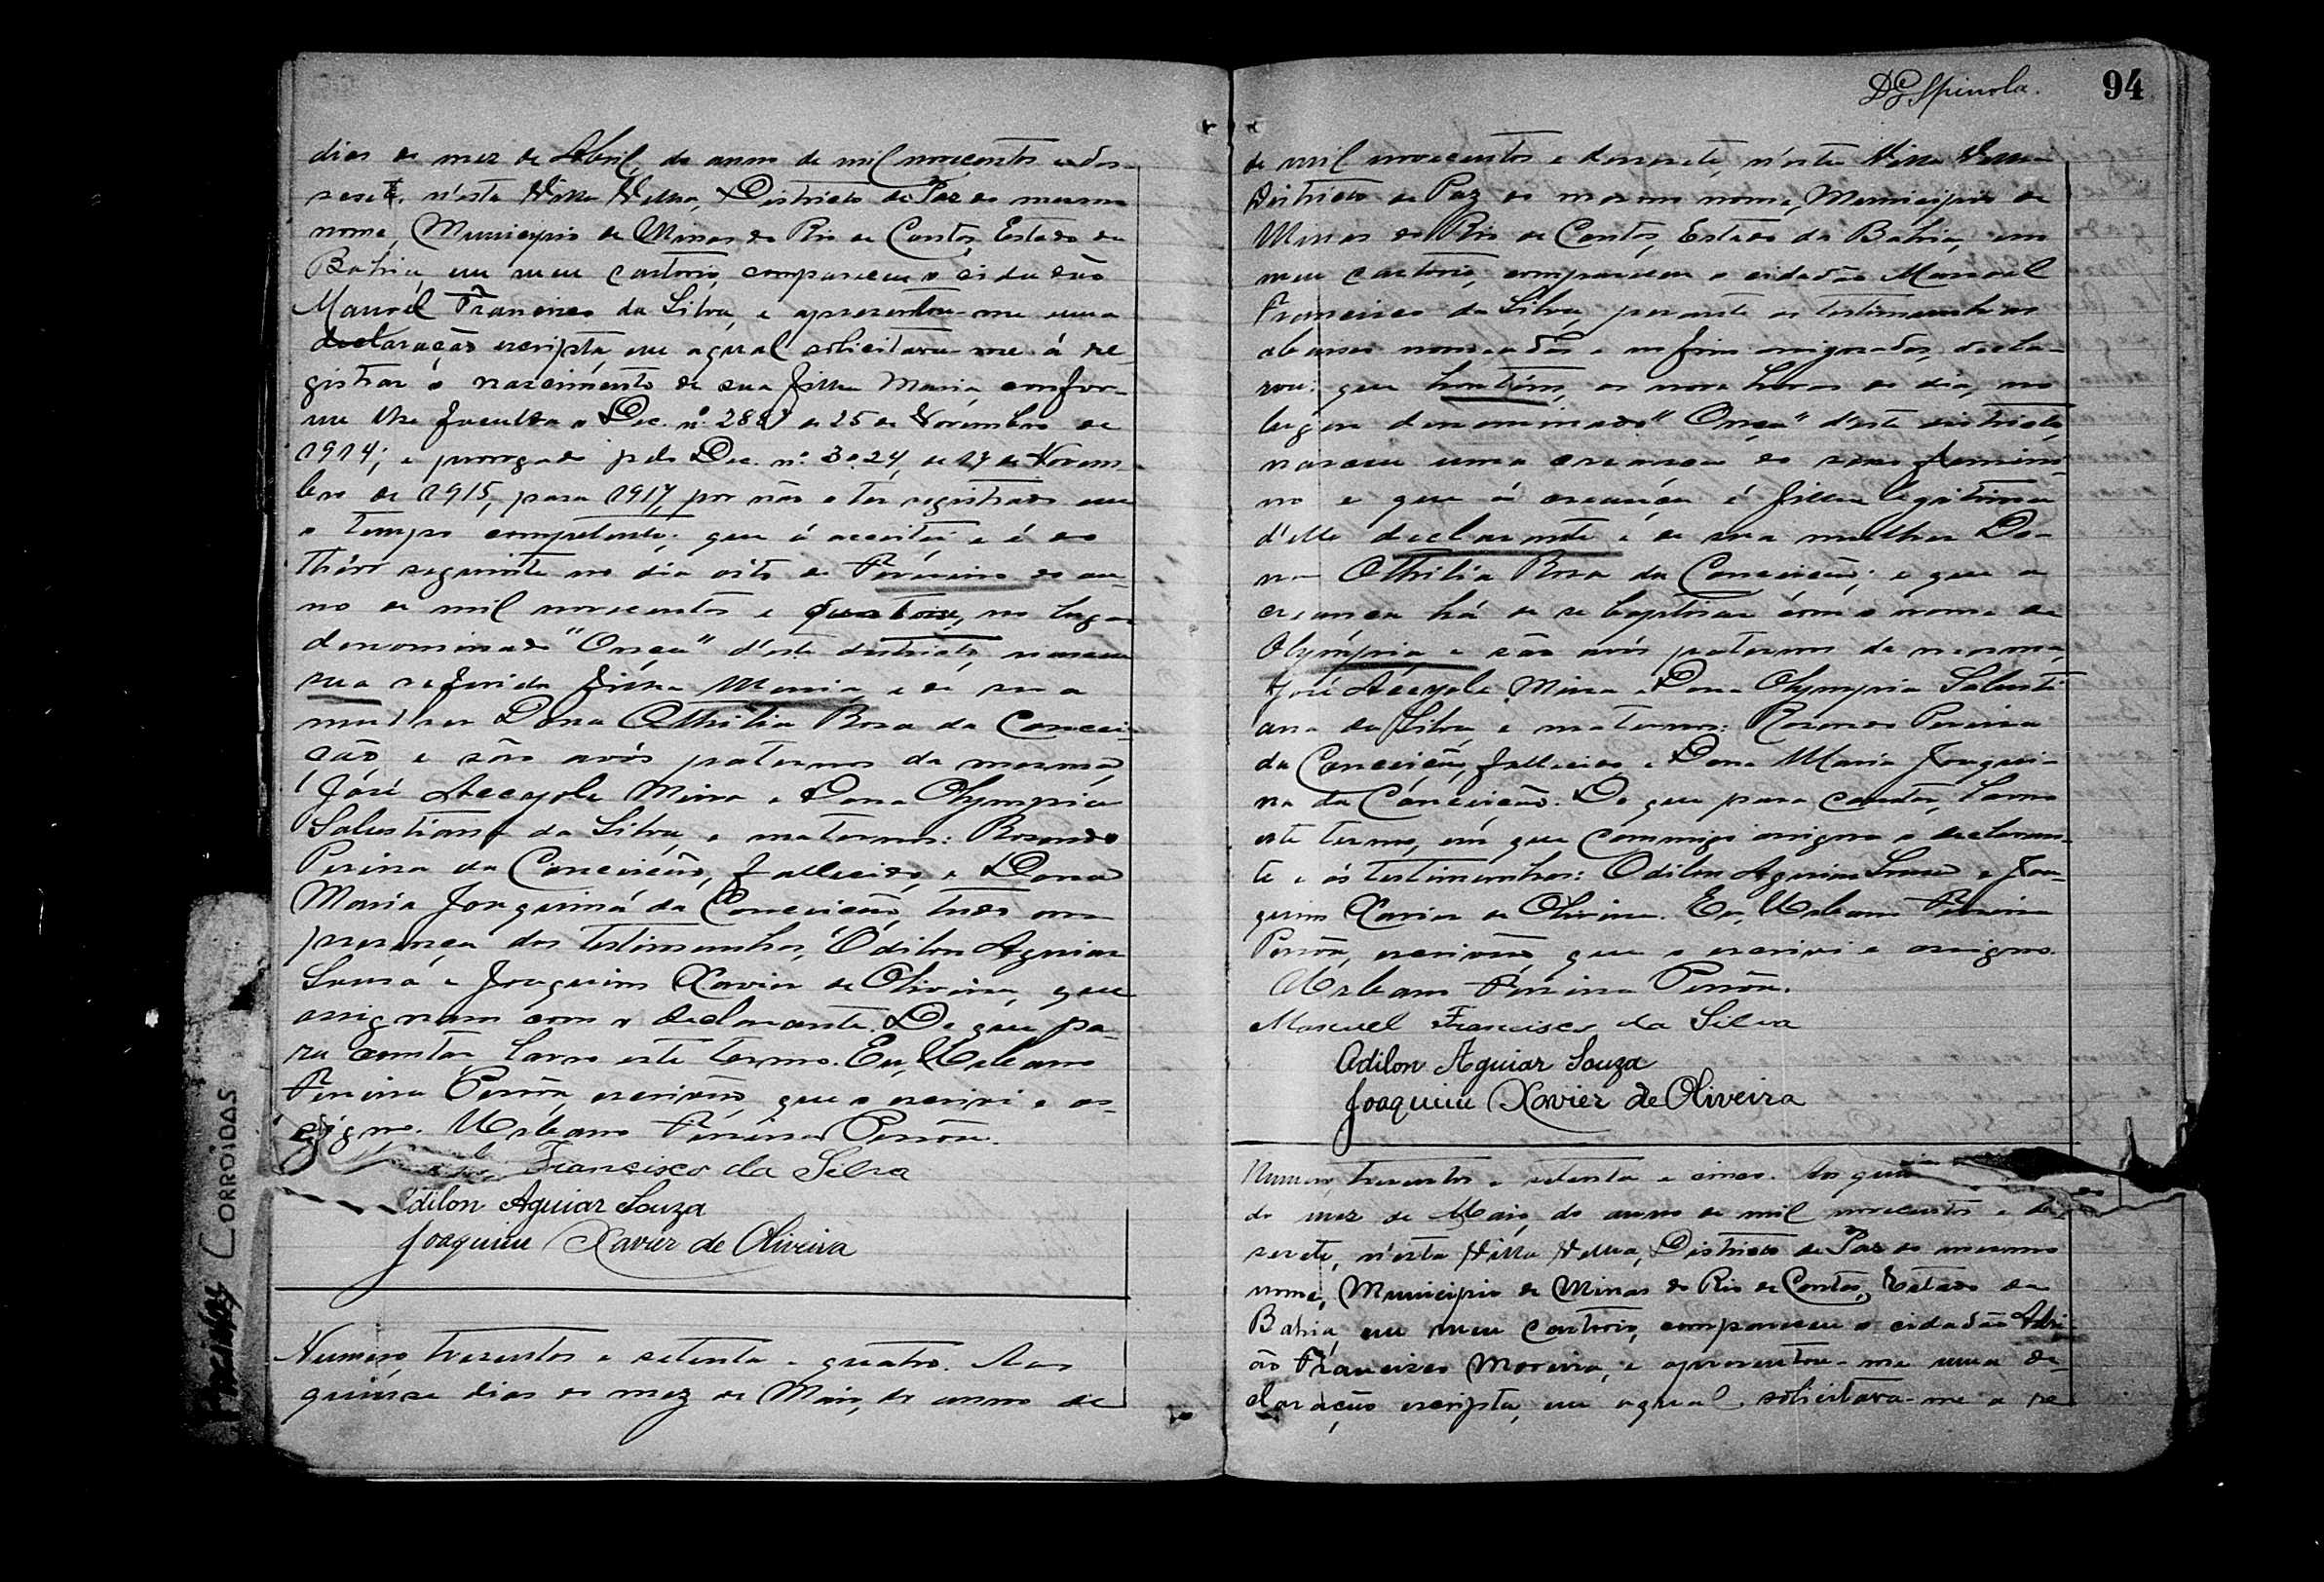 dias do mez de Abril, do anno de mil novecentos e des-
sesete, n'esta Villa Velha, Districto de Paz do mesmo
nome, Municipio de Minas do Rio de Contas, Estado da
Bahia, em meu cartorio, compareceu o cidadão
Manoel Francisco da Silva, e apresentou-me uma
declaração escripta, em a qual solicitava-me á re
gistrar o nascimento de sua filha Maria, confor-
me lhe faculta o Dec. nº 2887 de 25 de Novembro de
1914; e prorogado pelo Dec. nº 3.024, de 17 de Novem-
bro de 1915, para 1917, por não o ter registrado em
o tempo competente; que á acceitei e é do
thêor seguinte no dia oito de Fevereiro do an-
no de mil novecentos e quatorze, no lugar
denominado "Onça" d'este districto, nasceu
sua referida filha Maria, e de sua
mulher Dona Othilia Rosa da Concei-
ção e são avós paternos da mesma,
José Accayole Mira e Dona Olympia
Salustiana da Silva, e maternos: Rosendo
Pereira da Conceição, fallecido, e Dona
Maria Joaquina da Conceição, tudo em
presença das testimunhas, Odilon Aguiar
Sousa e Joaquim Xavier de Oliveira, que
assignam com o declarante. De que pa-
ra constar lavro este termo. Eu, Urbano
Pereira Penôa, escrivão, que o escrivi e as-
signo. Urbano Pereira Penôa.
Francisco da Silva
Odilon Aguiar Souza
Joaquim Xavier de Oliveira
Numero, tresentos e setenta e quatro. Aos
quinse dias do mez de Maio, do anno de
D G Spinola. 94
de mil novecentos e desesete, n'esta Villa Velha
Districto de Paz do mesmo nome, Municipio de
Minas do Rio de Contas, Estado da Bahia, em
meu cartorio, compareceu o cidadão Manoel
Francisco da Silva, perante as testimunhas
abaixo nomeadas e infim assignadas, decla-
rou: que hontêm, as nove horas do dia, no
lugar denominado "Onça" d'este districto,
nasceu uma creança do sexo femini-
no e que á creança é filha legitima
d'elle declarante e de sua mulher Do-
na Othilia Rosa da Conceição; e que a
creança há de se baptisar com o nome de
Olýmpia e são avós paternos da mesma,
José Accayole Mira e Dona Olympia Salusti-
ana da Silva, e maternos: Rosendo Pereira
da Conceição, fallecido, e Dona Maria Joaqui-
na da Conceição. De que para constar, lavro
este termo, em que commigo assigna o declaran-
te e ás testimunhas: Odilon Aguiar Sousa e Joa-
quim Xavier de Oliveira. Eu, Urbano Pereira
Penôa, escrivão, que o escrivi e assigno.
Urbano Pereira Penôa.
Manuel Francisco da Silva
Odilon Aguiar Souza
Joaquim Xavier de Oliveira
Numero, tresentos e setenta e cinco. Aos
do mez de Maio, do anno de mil novecentos e de-
sesete, n'esta Villa Velha, Districto de Paz do mesmo
nome, Municipio de Minas do Rio de Contas, Estado da
Bahia, em meu cartorio, compareceu o cidadão Adri-
ão Francisco Moreira, e apresentou-me uma de-
claração escripta, em a qual solicitava-me a re
CORROIDAS